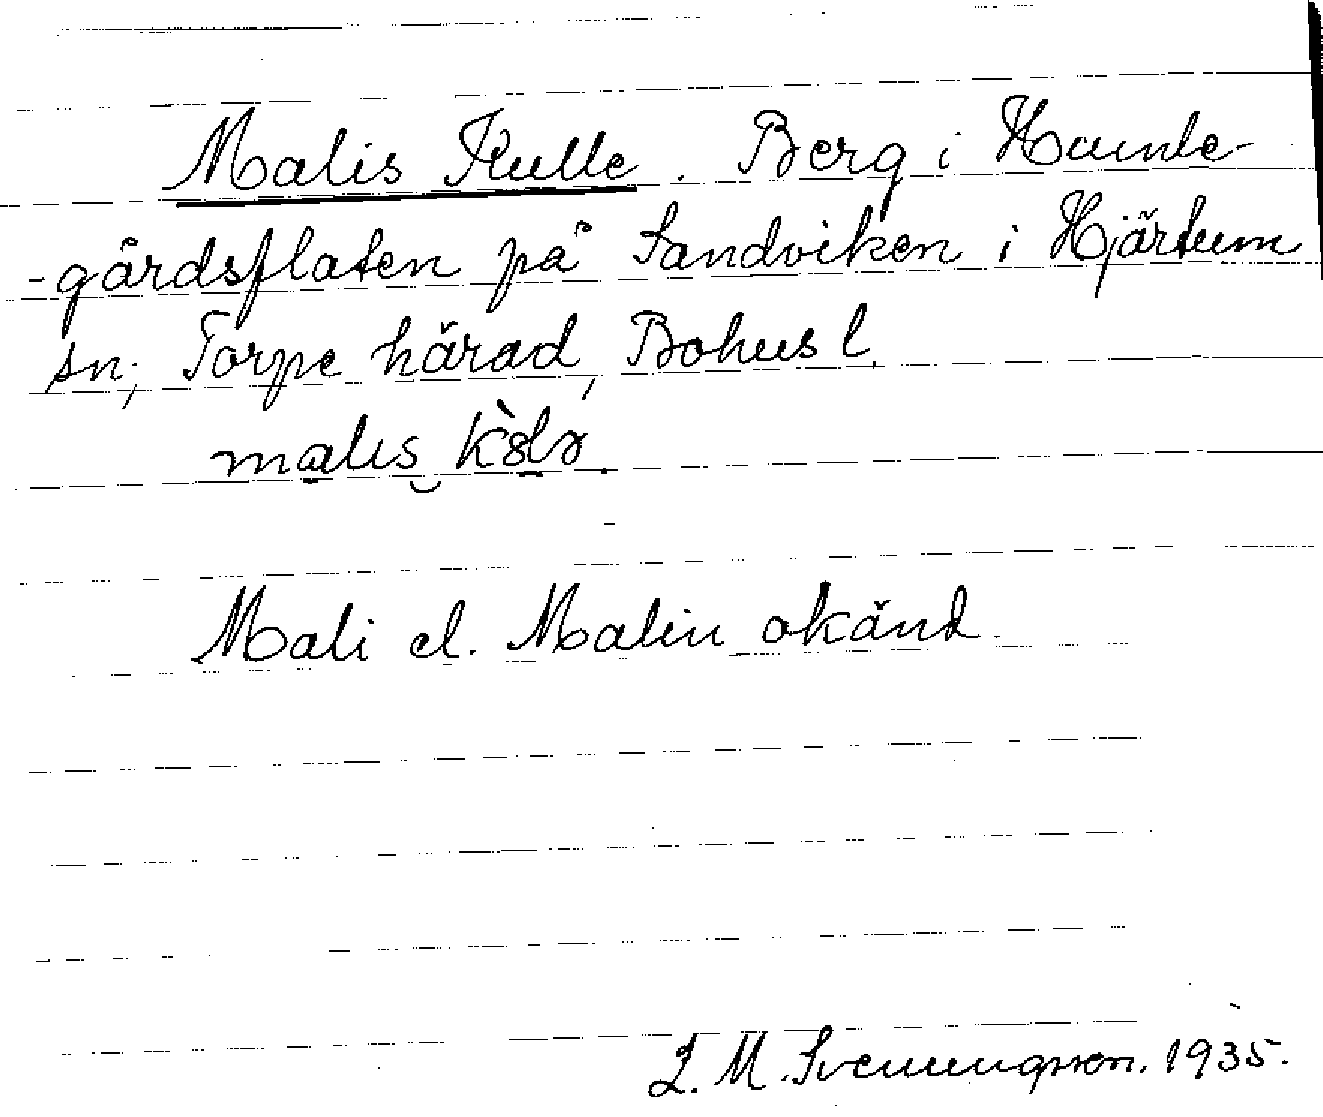 Malis Kulle. Berg i Hamle-
-gårdsflaten på Sandviken i Hjärtum
sn, Torpe härad, Bohusl.
Mali el. Malin okänd.
L. M. Svenungsson. 1935.